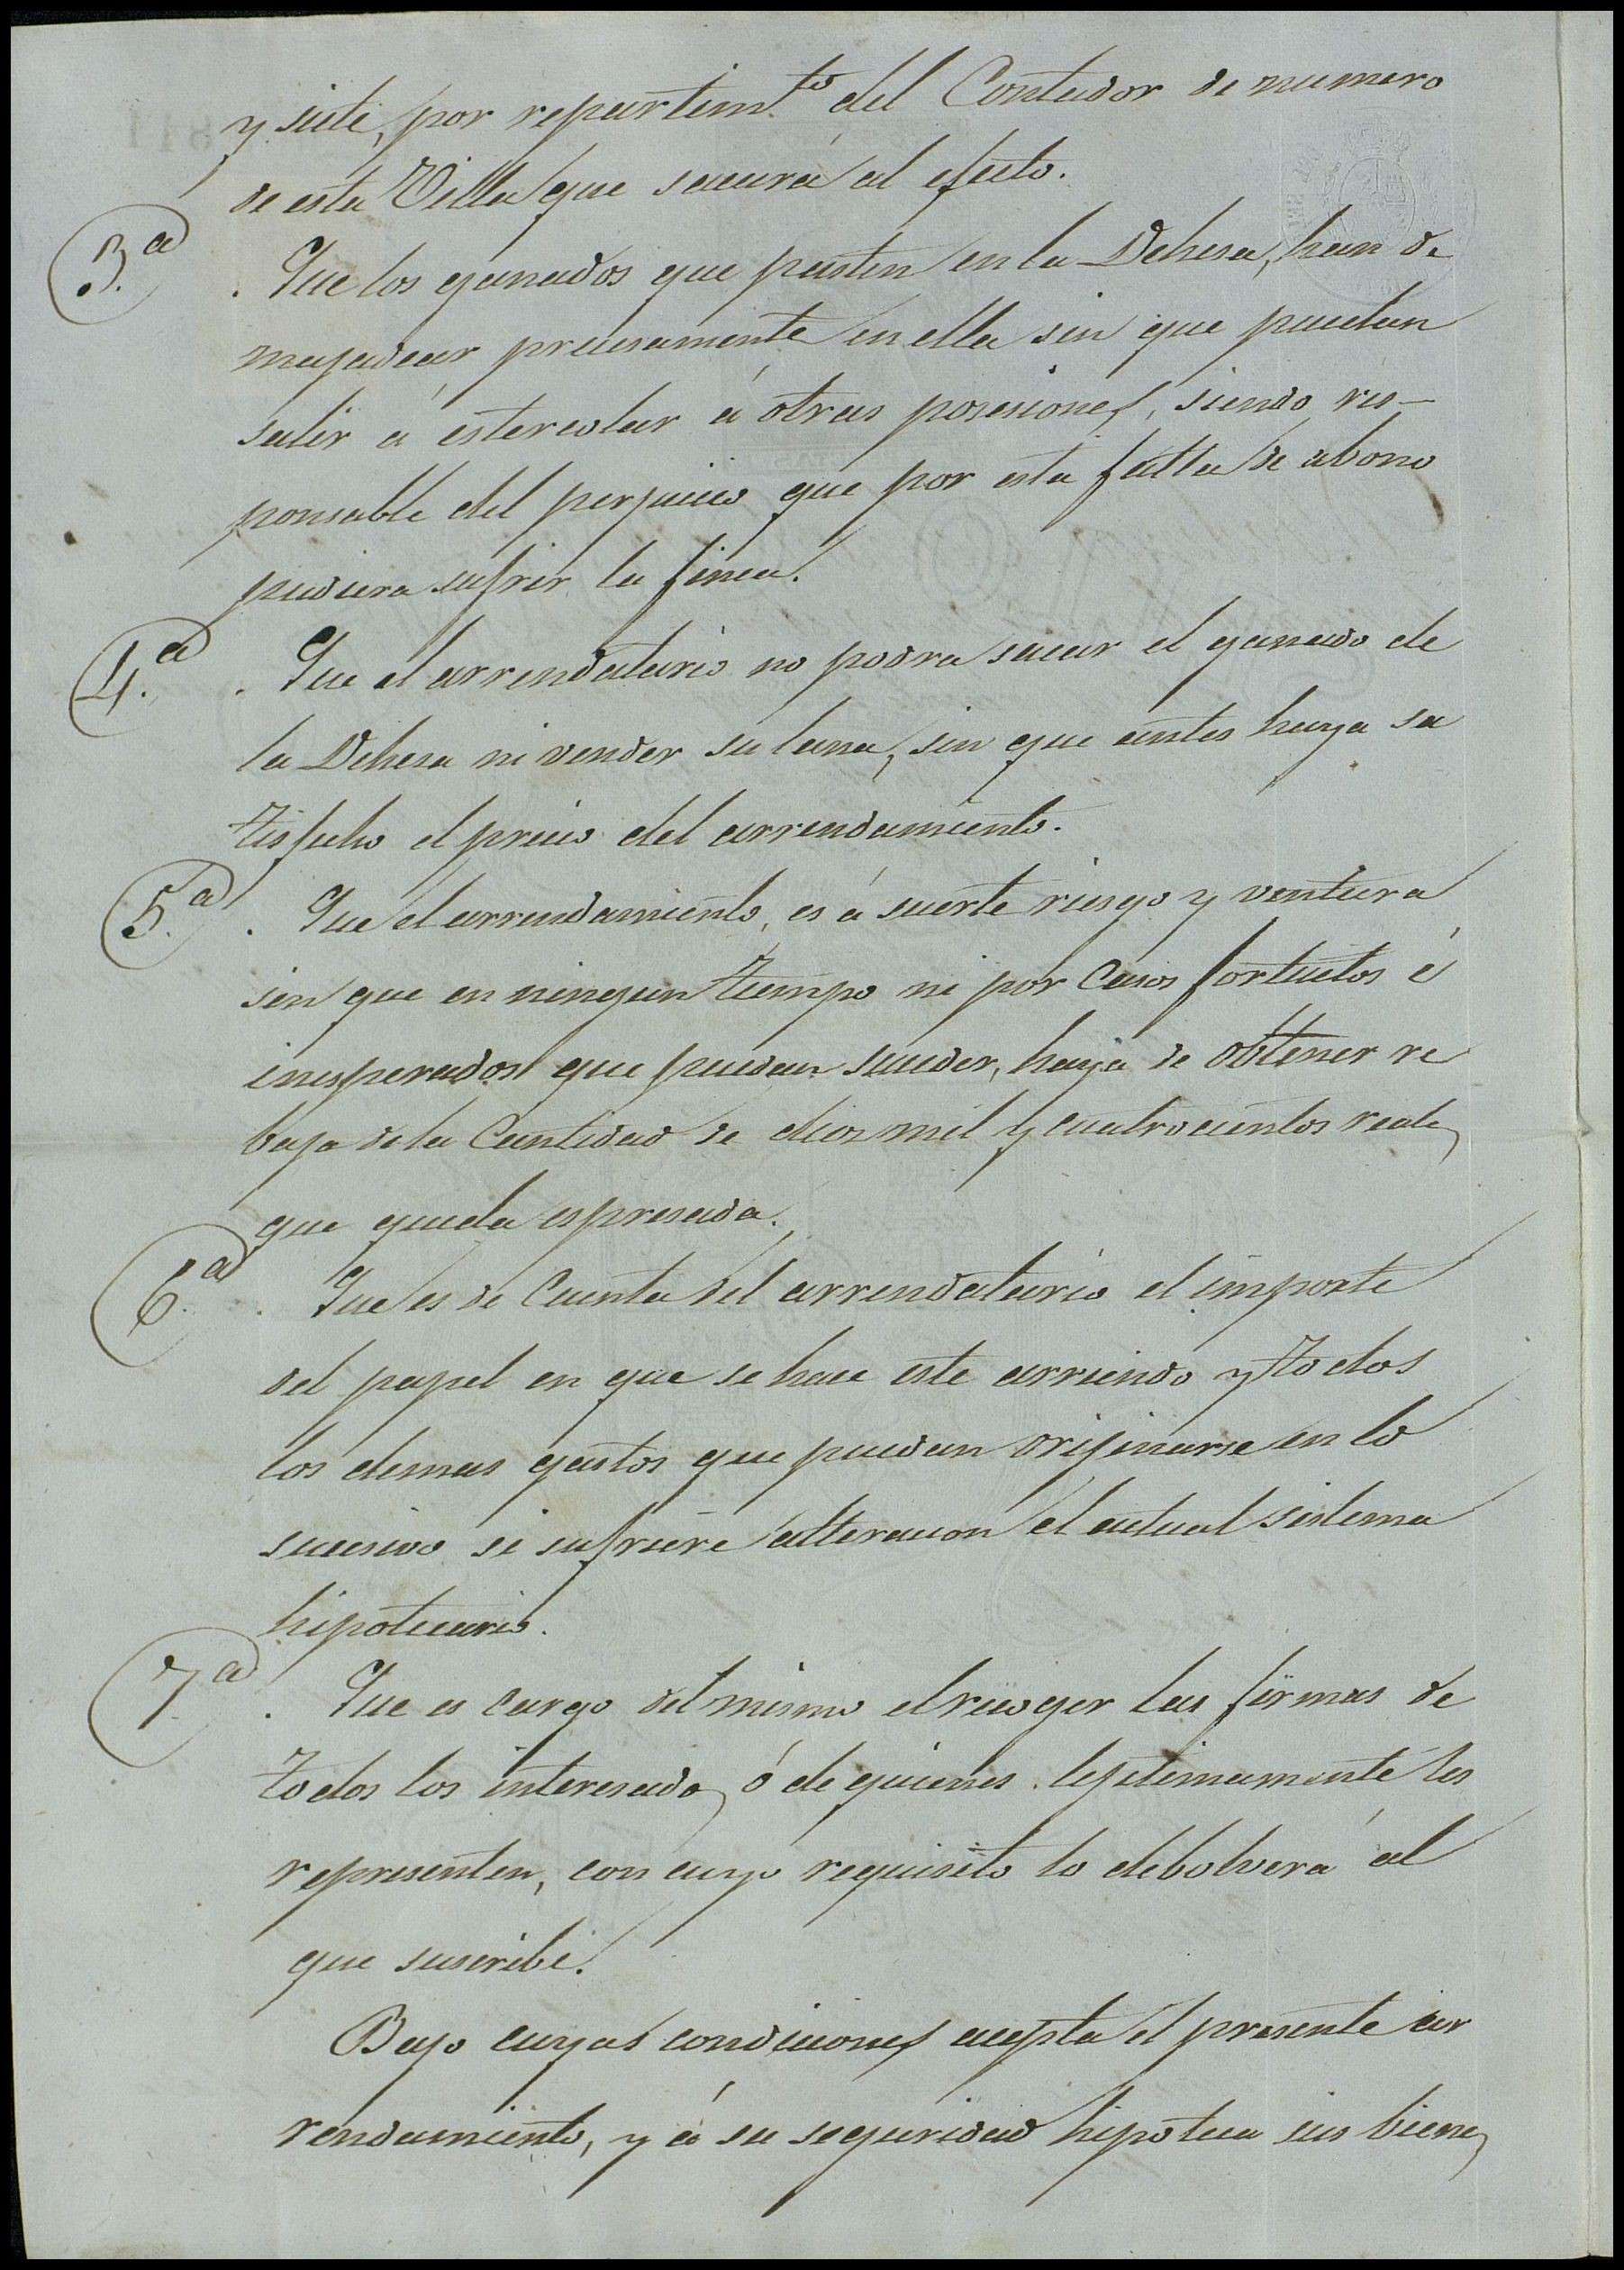 y siete, por repartim.to del Contador de numero
de esta Villa que sacará al efecto.
3.a . Que los ganados que pasten en la Dehesa, han de
majadear precisamente en ella sin que puedan
salir á estercolar á otras posesiones, siendo res-
ponsable del perjuicio que por esta falta de abono
pudiera sufrir la finca.
4.a . Que el arrendatario no podra sacar el ganado de
la Dehesa ni vender su lana, sin que antes haya sa
tisfecho el precio del arrendamiento.
5.a . Que el arrendamiento, es á suerte riesgo y ventura
sin que en ningun tiempo ni por Casos fortuitos é
inesperados que puedan suceder, haya de obtener re
baja de la Cantidad de diez mil y cuatrocientos reales
que queda espresada.
6.a . Que es de Cuenta del arrendatario el importe
del papel en que se hace este arriendo y todos
los demas gastos que puedan orijinarse en lo
sucesivo si sufriere alteracion el actual sistema
hipotecario.
7.a . Que es cargo del mismo el recoger las firmas de
todos los interesados, ó de quienes lejitimamente les
representen, con cuyo requisito lo debolverá al
que suscribe.
Bajo cuyas condiciones acepta el presente ar
rendamiento, y á su seguridad hipoteca sus bienes